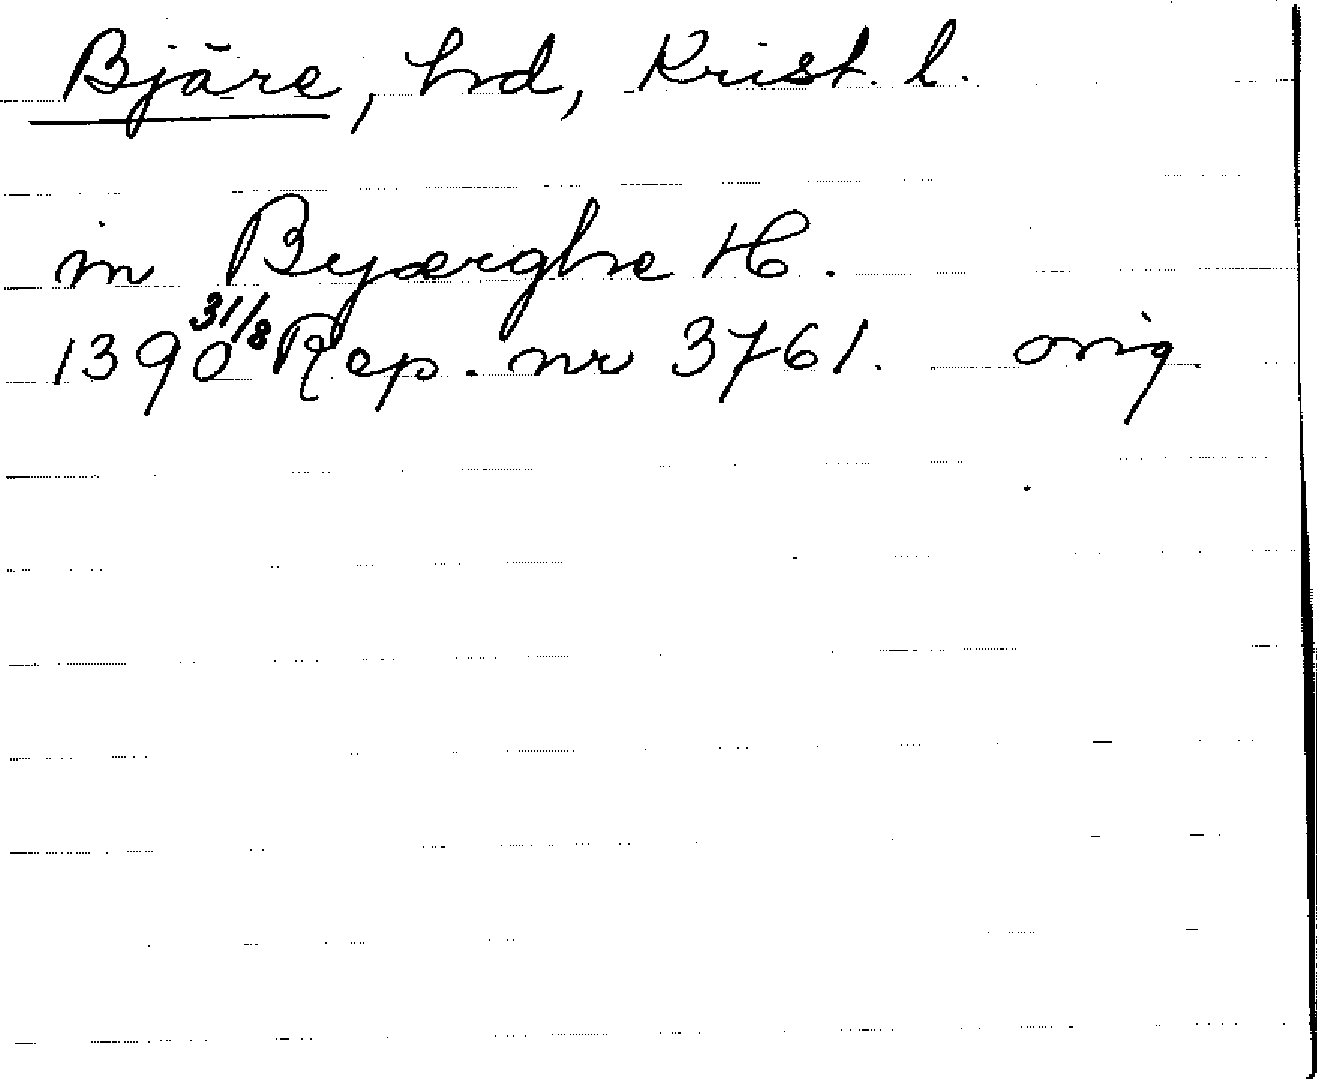 Bjäre, hd, Krist. l.
in Byærghe H.
1390 31/8 Rep. nr 3761. orig